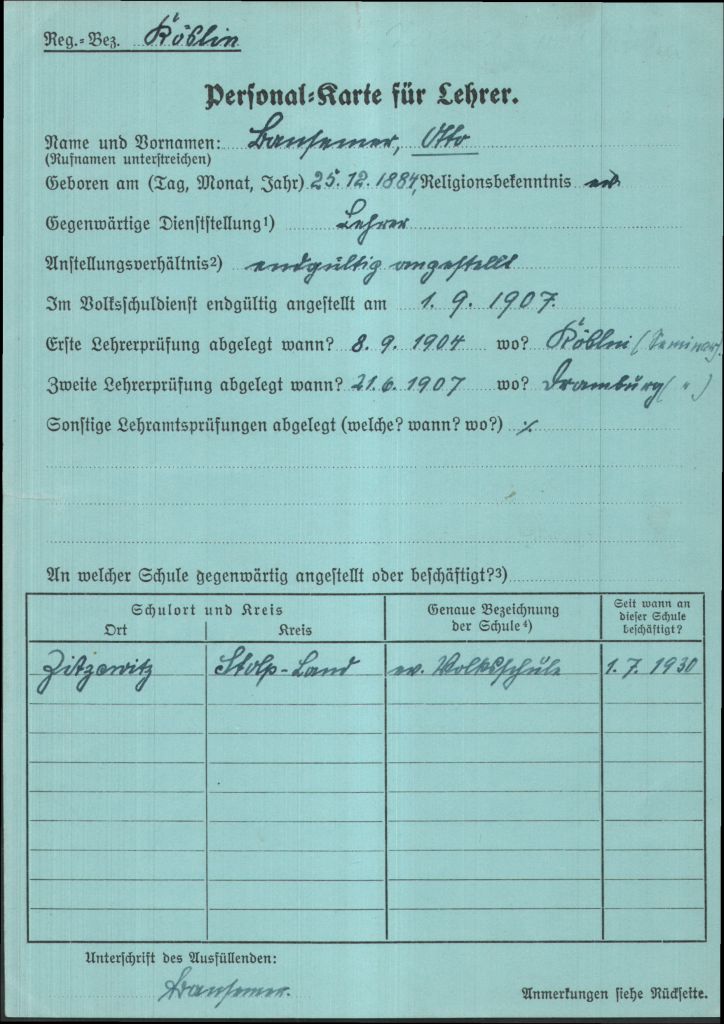 Reg.-Bez. Köslin
Personal-Karte für Lehrer.
Name und Vornamen: Bansemer, Otto
(Rufnamen unterstreichen)
Geboren am (Tag, Monat, Jahr) 25.12.1884, Religionsbekenntnis ev.
Gegenwärtige Dienststellung¹) Lehrer
Anstellungsverhältnis²) endgültig angestellt
Im Volksschuldienst endgültig angestellt am 1. 9. 1907.
Erste Lehrerprüfung abgelegt wann? 8. 9. 1904 wo? Köslin (Seminar).
Zweite Lehrerprüfung abgelegt wann? 21.6. 1907 wo? Dramburg ( " )
Sonstige Lehramtsprüfungen abgelegt (welche? wann? wo?) ·/.
An welcher Schule gegenwärtig angestellt oder beschäftigt?³)
Schulort und Kreis
Ort Kreis
Genaue Bezeichnung
der Schule⁴)
Seit wann an
dieser Schule
beschäftigt?
Zitzewitz Stolp-Land ev. Volksschule 1. 7. 1930
Unterschrift des Ausfüllenden:
Bansemer.
Anmerkungen siehe Rückseite.